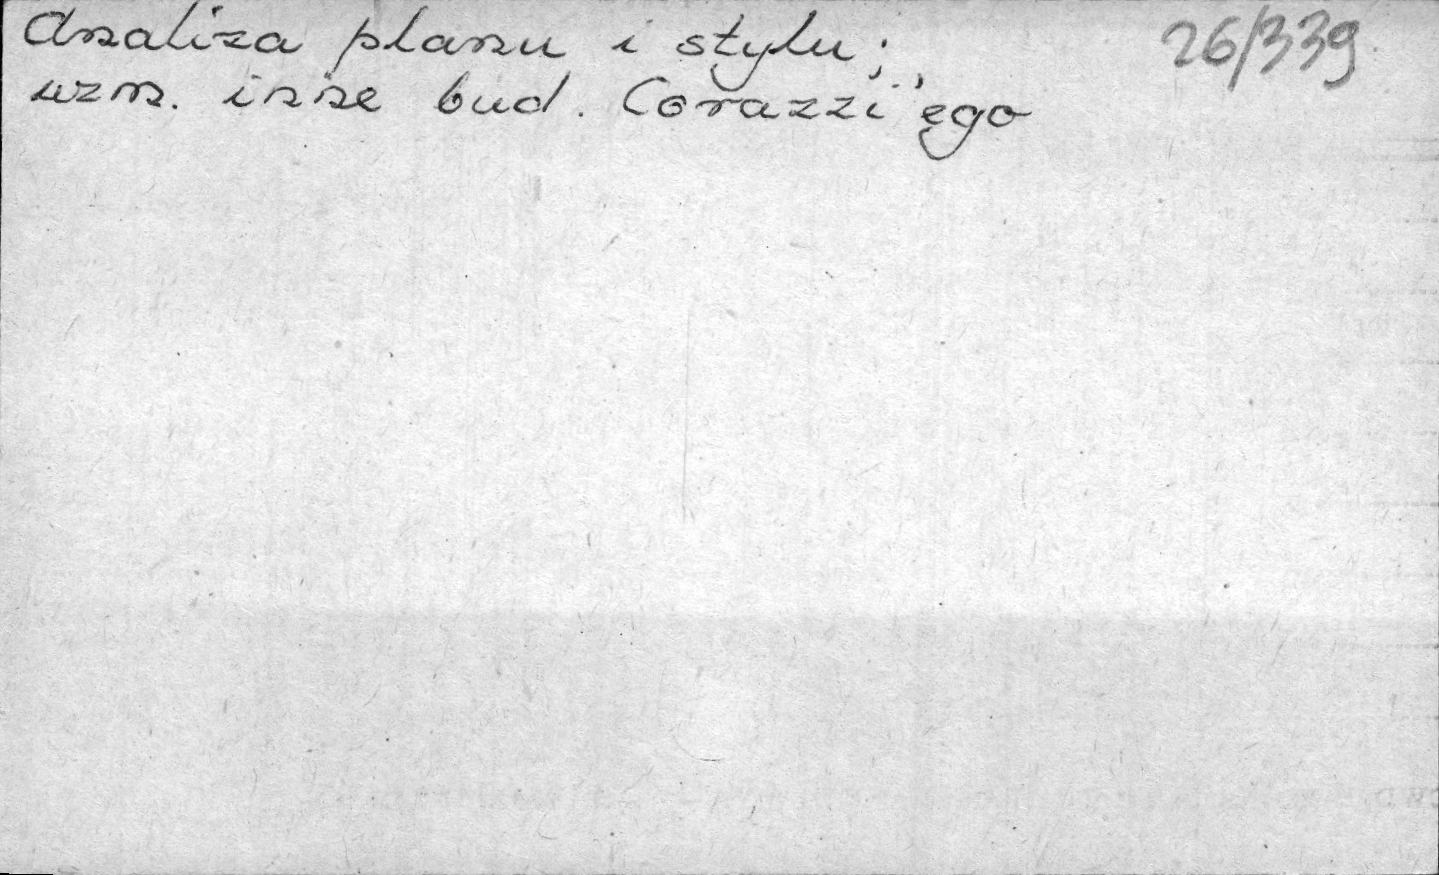 Analiza planu i stylu; 26/339
wzm. inne bud. Corazzi'ego